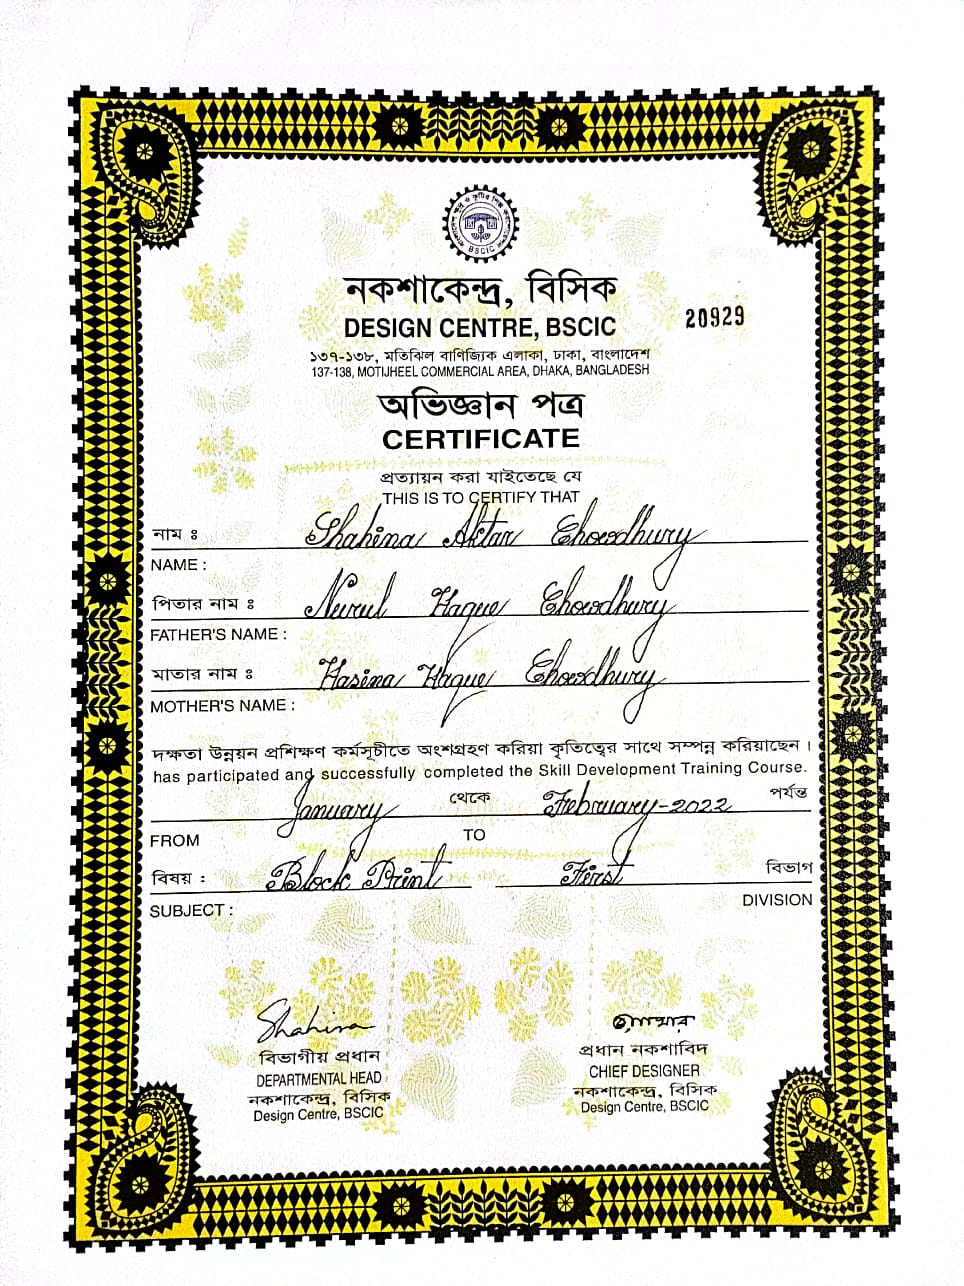 BSCIC
নকশাকেন্দ্র, বিসিক
DESIGN CENTRE, BSCIC
20929
১৩৭-১৩৮, মতিঝিল বাণিজ্যিক এলাকা, ঢাকা, বাংলাদেশ
137-138, MOTIJHEEL COMMERCIAL AREA, DHAKA, BANGLADESH
অভিজ্ঞান পত্র
CERTIFICATE
প্রত্যায়ন করা যাইতেছে যে
THIS IS TO CERTIFY THAT
নাম ঃ Shahina Aktar Chowdhury
NAME :
পিতার নাম ঃ Nurul Haque Chowdhury
FATHER'S NAME :
মাতার নাম ঃ Hasina Haque Chowdhury
MOTHER'S NAME :
দক্ষতা উন্নয়ন প্রশিক্ষণ কর্মসূচীতে অংশগ্রহণ করিয়া কৃতিত্বের সাথে সম্পন্ন করিয়াছেন।
has participated and successfully completed the Skill Development Training Course.
January থেকে February-2022 পর্যন্ত
FROM TO
বিষয় : Block Print First বিভাগ
SUBJECT : DIVISION
Shahina
বিভাগীয় প্রধান
DEPARTMENTAL HEAD
নকশাকেন্দ্র, বিসিক
Design Centre, BSCIC
প্রধান নকশাবিদ
CHIEF DESIGNER
নকশাকেন্দ্র, বিসিক
Design Centre, BSCIC